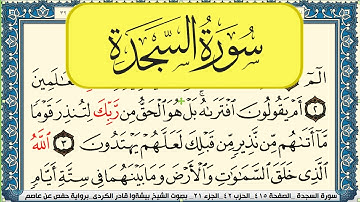 سُورَةُ السَّجْدَةِ
الٓمٓ
ٱلْعَٰلَمِينَ
٢ أَمْ يَقُولُونَ ٱفْتَرَىٰهُ ۚ بَلْ هُوَ ٱلْحَقُّ مِن رَّبِّكَ لِتُنذِرَ قَوْمًا
مَّآ أَتَىٰهُم مِّن نَّذِيرٍ مِّن قَبْلِكَ لَعَلَّهُمْ يَهْتَدُونَ ٣ ٱللَّهُ
ٱلَّذِى خَلَقَ ٱلسَّمَٰوَٰتِ وَٱلْأَرْضَ وَمَا بَيْنَهُمَا فِى سِتَّةِ أَيَّامٍ
سورة السجدة - الصفحة ٤١٥ الحزب ٤٢ - الجزء ٢١ - بصوت الشيخ بيشةوا قادر الكردي - برواية حفص عن عاصم